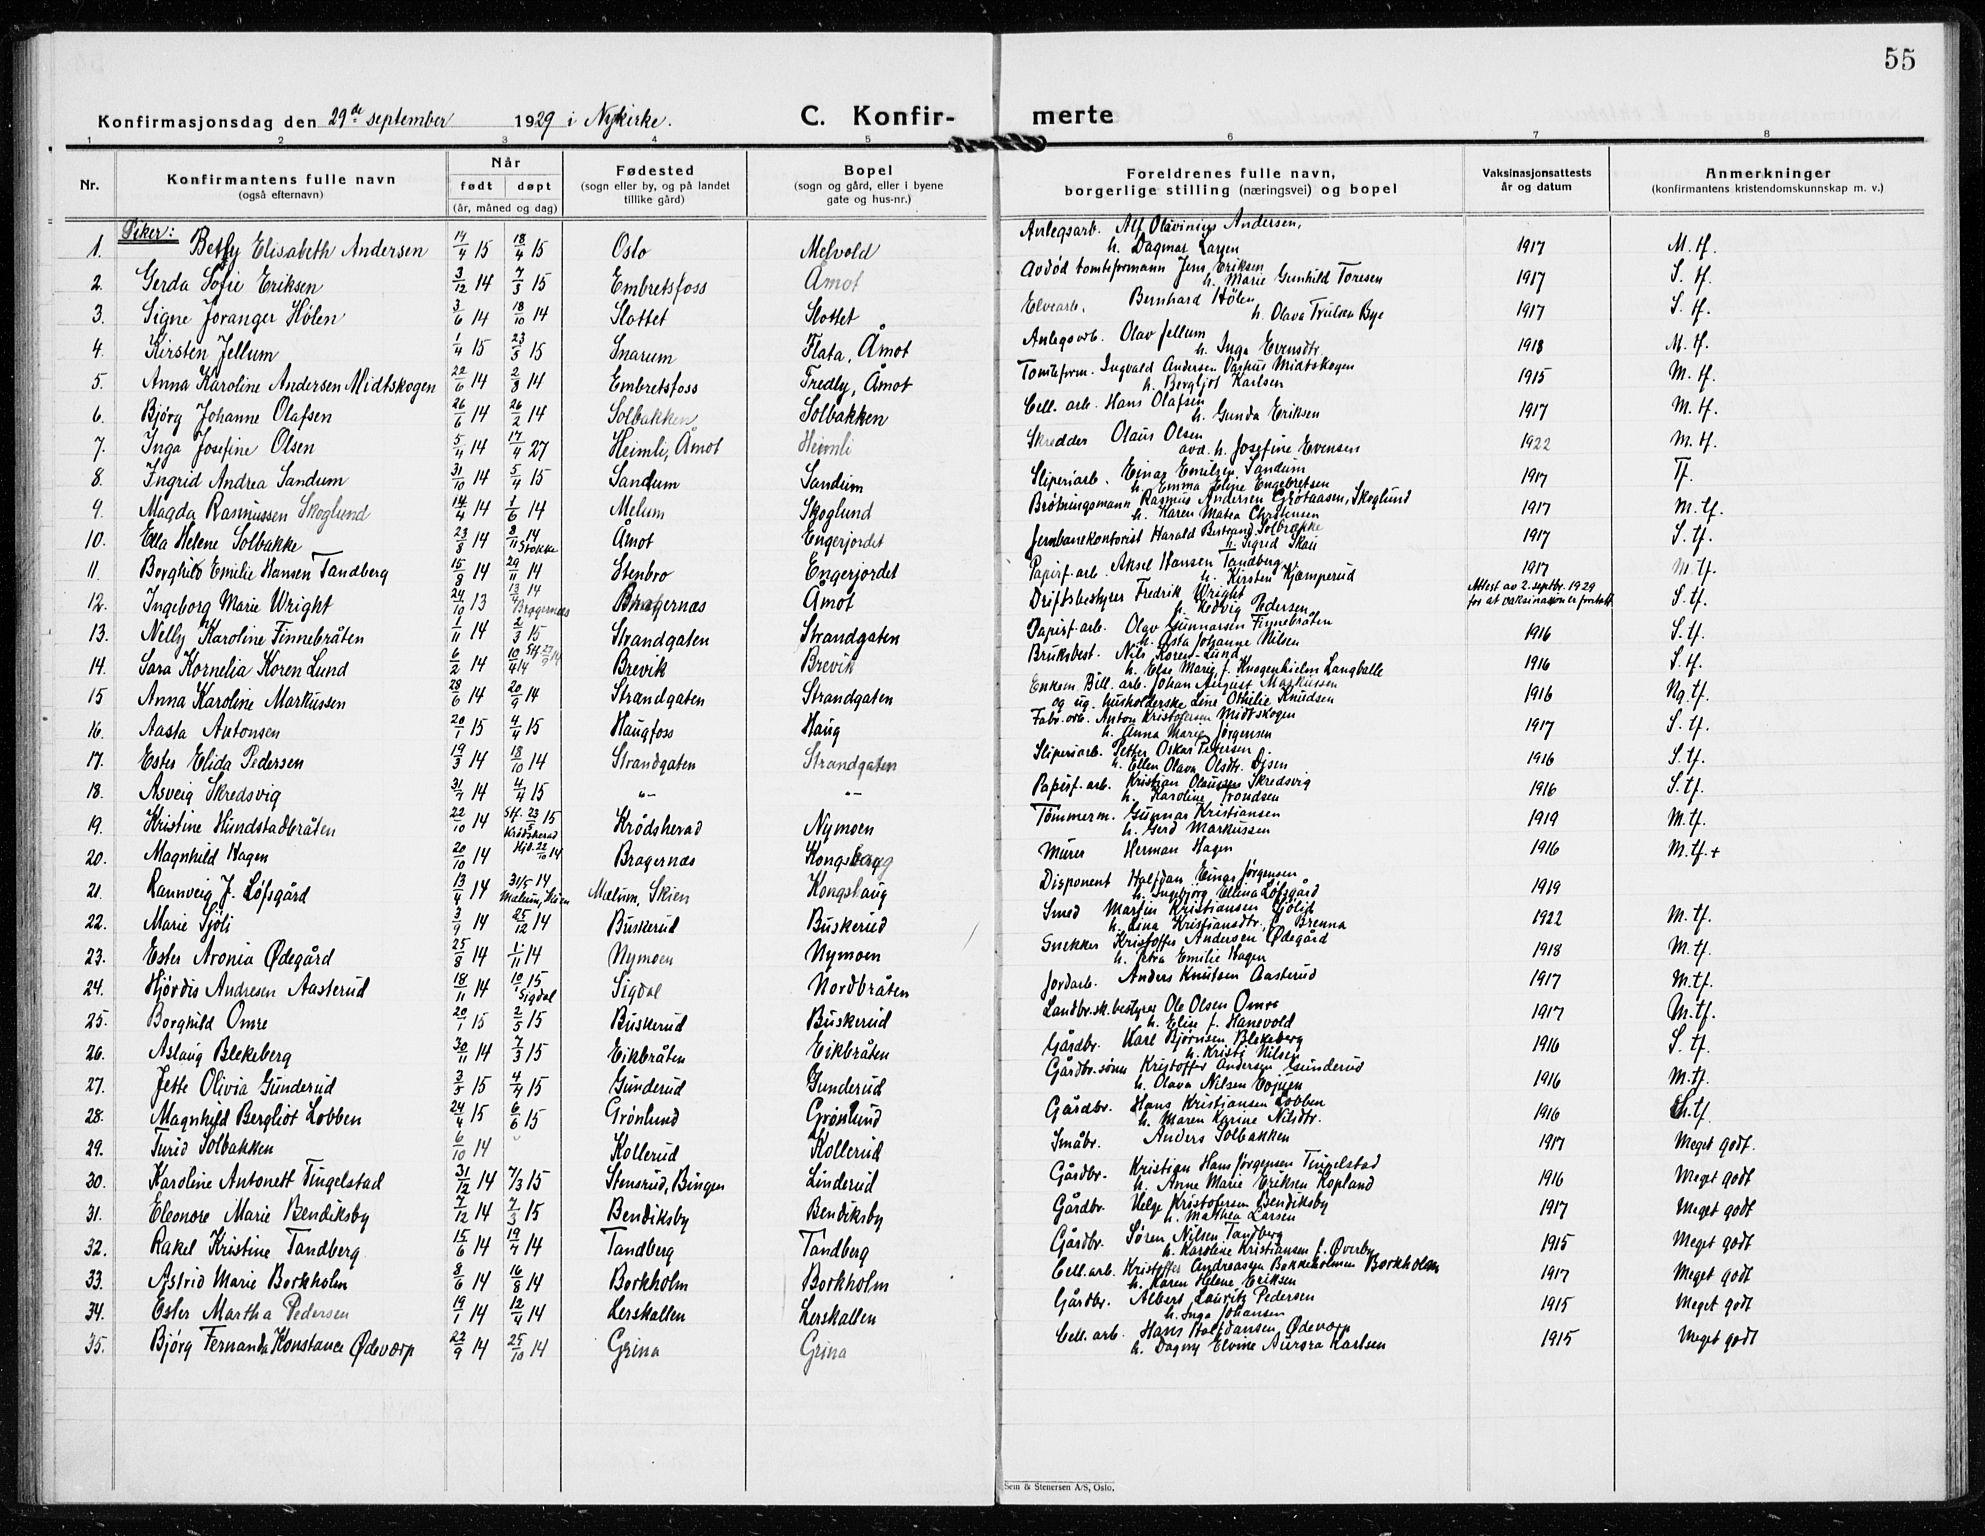 55
Konfirmasjonsdag den 29de september 1929 i Nykirke. C. Konfir- merte
1 2 3 4 5 6 7 8
Nr. Konfirmantens fulle navn (også efternavn) Når født døpt (år, måned og dag) Fødested (sogn eller by, og på landet tillike gård) Bopel (sogn og gård, eller i byene gate og hus-nr.) Foreldrenes fulle navn, borgerlige stilling (næringsvei) og bopel Vaksinasjonsattests år og datum Anmerkninger (konfirmantens kristendomskunnskap m. v.)
Piker:
1. Betsy Elisabeth Andersen 14/4 15 18/4 15 Oslo Melvold Anlegsarb. Alf Olavinius Andersen, h. Dagmar Larsen 1917 M. tf.
2. Gerda Sofie Eriksen 3/12 14 7/3 15 Embretsfoss Åmot Avdød tomteformann Jens Eriksen h. Marie Gunhild Toresen 1917 S. tf.
3. Signe Joranger Hølen 3/6 14 18/10 14 Slottet Slottet Elvearb. Bernhard Hølen h. Olava Trulsen Bye 1917 S. tf.
4. Kirsten Jellum 1/4 15 23/5 15 Snarum Flata, Åmot Anlegsarb. Olav Jellum h. Inga Evensdtr 1918 M. tf.
5. Anna Karoline Andersen Midtskogen 22/6 14 2/8 14 Embretsfoss Fredly, Åmot Tomteform. Ingvald Andersen Midtskogen h. Bergljot Karlsen 1915 M. tf.
6. Bjørg Johanne Olafsen 26/6 14 26/2 14 Solbakken Solbakken Cell. arb. Hans Olafsen h. Gunda Eriksen 1917 M. tf.
7. Inga Josefine Olsen 5/4 14 17/4 27 Heimli, Åmot Heimli Skredder Olaus Olsen avd. h. Josefine Evensen 1922 M. tf.
8. Ingrid Andrea Sandum 31/10 14 5/4 15 Sandum Sandum Sliperiarb. Einar Emilsen Sandum h. Emma Eline Engebretsen 1917 Tf.
9. Magda Rasmussen Skoglund 14/4 14 1/6 14 Melum Skoglund Brøtningsmann Rasmus Andersen Grøtaasen, Skoglund h. Karen Matea Christensen 1917 M. tf.
10. Ella Helene Solbakke 23/8 14 8/11 14 Stokke Åmot Engerjordet Jernbanekontorist Harald Bertrand Solbakke h. Sigrid Skau 1917 S. tf.
11. Borghild Emilie Hansen Tandberg 15/8 14 29/11 14 Stenbro Engerjordet Papirf. arb. Aksel Hansen Tandberg h. Kirsten Kjæmperud 1917 M. tf.
12. Ingeborg Marie Wright 24/10 13 13/4 14 Bragernæs Bragernæs Åmot Driftsbestyrer Fredrik Wright h. Hedvig Pedersen Attest av 2. septbr. 1929 for at vaksinasjon er foretatt S. tf.
13. Nelly Karoline Finnebråten 1/11 14 2/3 15 Strandgaten Strandgaten Papirf. arb. Olav Gunnarsen Finnebråten h. Asta Johanne Nilsen 1916 S. tf.
14. Sara Kornelia Koren Lund 6/2 14 10/4 14 St. 27/9 14 Brevik Brevik Bruksbest. Nils Koren-Lund h. Else Marie f. Knagenhielm Langballe 1916 S. tf.
15 Anna Karoline Markussen 28/6 14 20/9 14 Strandgaten Strandgaten Enkem. Cell. arb. Johan August Markussen og ug. husholderske Line Othilie Knudsen 1916 Ng. tf.
16. Aasta Antonsen 20/1 15 4/4 15 Haugfoss Haug Fabr. arb. Anton Kristofersen Midtskogen h. Anna Marie Jørgensen 1917 S. tf.
17. Ester Elida Pedersen 19/3 14 18/10 14 Strandgaten Strandgaten Sliperiarb. Petter Oskar Pedersen h. Ellen Olava Olsdtr. Disen 1916 S. tf.
18. Asveig Skredsvig 31/7 14 4/4 15 "- "- Papirf. arb. Kristian Olaussen Skredsvig h. Karoline Trondsen 1916 S. tf.
19. Kristine Hundstadbråten 22/10 14 St. 23/5 15 Krødsherad Krødsherad Nymoen Tømmerm. Gunnar Kristiansen h. Gerd Markussen 1919 M. tf.
20. Magnhild Hagen 20/10 14 Hjd. 22/10 14 Bragernæs Kongshaug Murer Herman Hagen 1916 M. tf. +
21. Rannveig J. Løfsgård 13/4 14 31/5 14 Mælum, Skien Mælum, Skien Kongshaug Disponent Halfdan Einar Jørgensen h. Ingebjørg Ellina Løfsgård 1919
22. Marie Sjøli 3/9 14 25/12 14 Buskerud Buskerud Smed Martin Kristiansen Sjøli h. Lina Kristiansdtr. f. Brenna 1922 M. tf.
23. Ester Aronia Ødegård 25/8 14 1/11 14 Nymoen Nymoen Snekker Kristoffer Andersen Ødegård h. Petra Emilie Hagen 1918 M. tf.
24. Hjørdis Andresen Aasterud 18/11 14 10/1 15 Sigdal Sigdal Nordbråten Jordarb. Anders Knutsen Aasterud 1917 M. tf.
25. Borghild Omre 20/1 15 2/5 15 Buskerud Buskerud Landbr.sk.bestyrer Ole Olsen Omre h. Elise f. Hanevold 1917 M. tf.
26. Aslaug Blekeberg 30/11 14 7/3 15 Eikbråten Eikbråten Gårdbr. Karl Bjørnsen Blekeberg h. Kristi Nilsen 1916 S. tf.
27. Jette Olivia Gunderud 3/3 15 4/4 15 Gunderud Gunderud Gårdbr. sønn Kristoffer Andersen Gunderud h. Olava Nilsen 1916 M. tf.
28. Magnhild Bergliot Lobben 24/4 15 6/6 15 Grønlund Grønlund Gårdbr. Hans Kristiansen Lobben h. Maren Karine Nilsdtr. 1916 tf.
29. Turid Solbakken 6/10 14 Kollerud Kollerud Småbr. Anders Solbakken 1917 Meget godt.
30. Karoline Antonett Tingelstad 31/12 14 7/3 15 Stensrud, Bingen Linderud Gårdbr. Kristian Hans Jørgensen Tingelstad h. Anne Marie Eriksen Kopland 1916 Meget godt
31. Eleonore Marie Bendiksby 7/12 14 7/3 15 Bendiksby Bendiksby Gårdbr. Helge Kristofersen Bendiksby h. Mathea Larsen 1917 Meget godt
32. Rakel Kristine Tandberg 15/6 14 19/7 14 Tandberg Tandberg Gårdbr. Søren Nilsen Tandberg h. Karoline Kristiansen f. Øverby 1915 Meget godt
33. Astrid Marie Borkholm 8/6 14 16/8 14 Borkholm Borkholm Cell. arb. Kristoffer Andreasen Bakkeholmen Borkholm h. Karen Helene Eriksen 1917 Meget godt
34. Ester Martha Pedersen 19/1 14 12/4 14 Lerskallen Lerskallen Gårdbr. Albert Lauritz Pedersen h. Inga Johansen 1915 Meget godt
35. Bjørg Fernanda Konstance Ødeværp 22/9 14 25/10 14 Grina Grina Cell. arb. Hans Halfdansen Ødeværp h. Dagny Elvine Aurora Karlsen 1915 Meget godt
Sem & Stenersen A/S, Oslo.